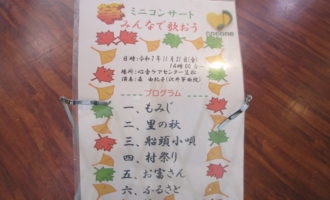 ミニコンサート
みんなで歌おう
cocone
日時:令和7年11月21日(金)
14時00分~
プログラム
一、もみじ
二、里の秋
三、船頭小唄
四、村祭り
五、お富さん
六、ふるさと